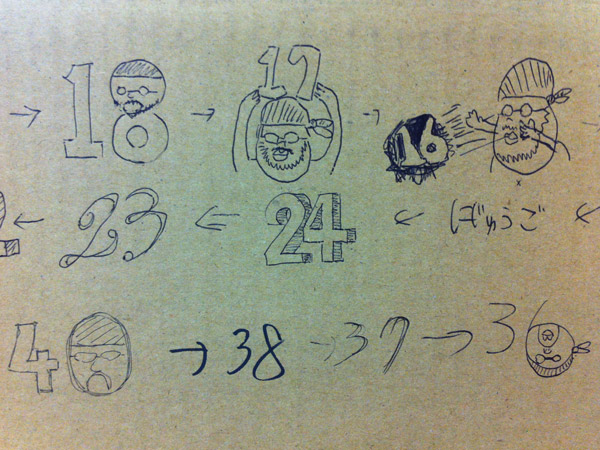 → 18 → 17 → 16 →
← 23 ← 24 ← にじゅうご ←
40 → 38 → 37 → 36